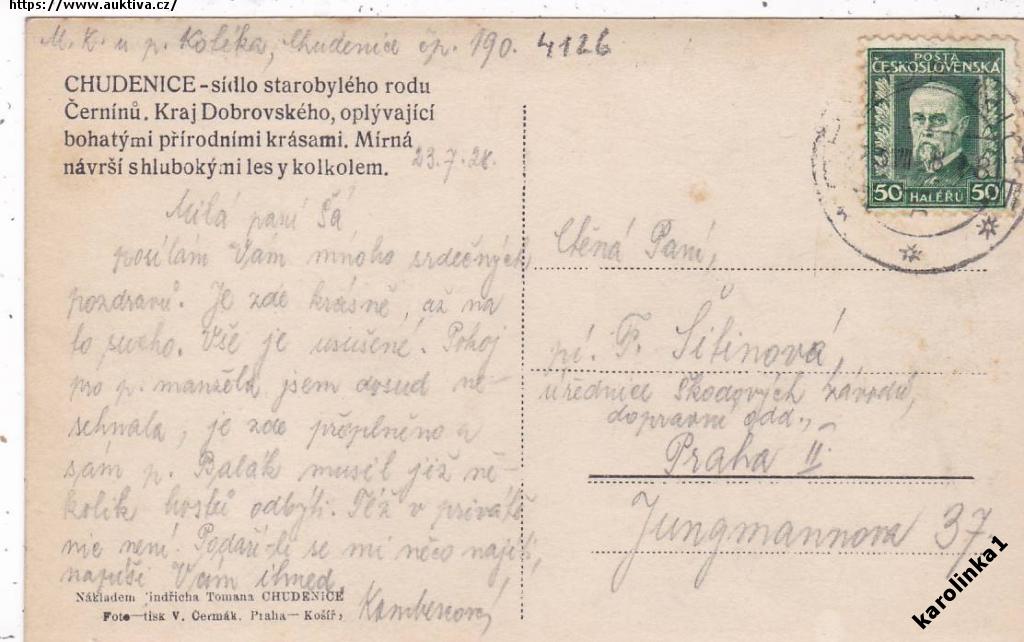 https://www.auktiva.cz/
M. K. u p. Koléka, Chudenice čp. 190. 4126
CHUDENICE - sídlo starobylého rodu
Černínů. Kraj Dobrovského, oplývající
bohatými přírodními krásami. Mírná
návrší s hlubokými lesy kolkolem.
23.7.28.
Milá paní Šá
posílám Vám mnoho srdečných
pozdravů. Je zde krásně, až na
to sucho. Vše je usušené. Pokoj
pro p. manžela jsem dosud ne-
sehnala, je zde přeplněno a
sám p. Balák musil již ně-
kolik hostů odbýti. Též v privátě
nic není. Podaří-li se mi něco najíti,
napíši Vám ihned.
Nákladem Jindřicha Tomana CHUDENICE
Foto—tisk V. Čermák, Praha—Košíř,
POŠTA
ČESKOSLOVENSKÁ
50 HALÉŘŮ 50
Ctěná Paní,
pí. F. Šitinová,
úřednice Škodových závodů,
dopravní odd.,
Praha II.
Jungmannova 37
karolinka1